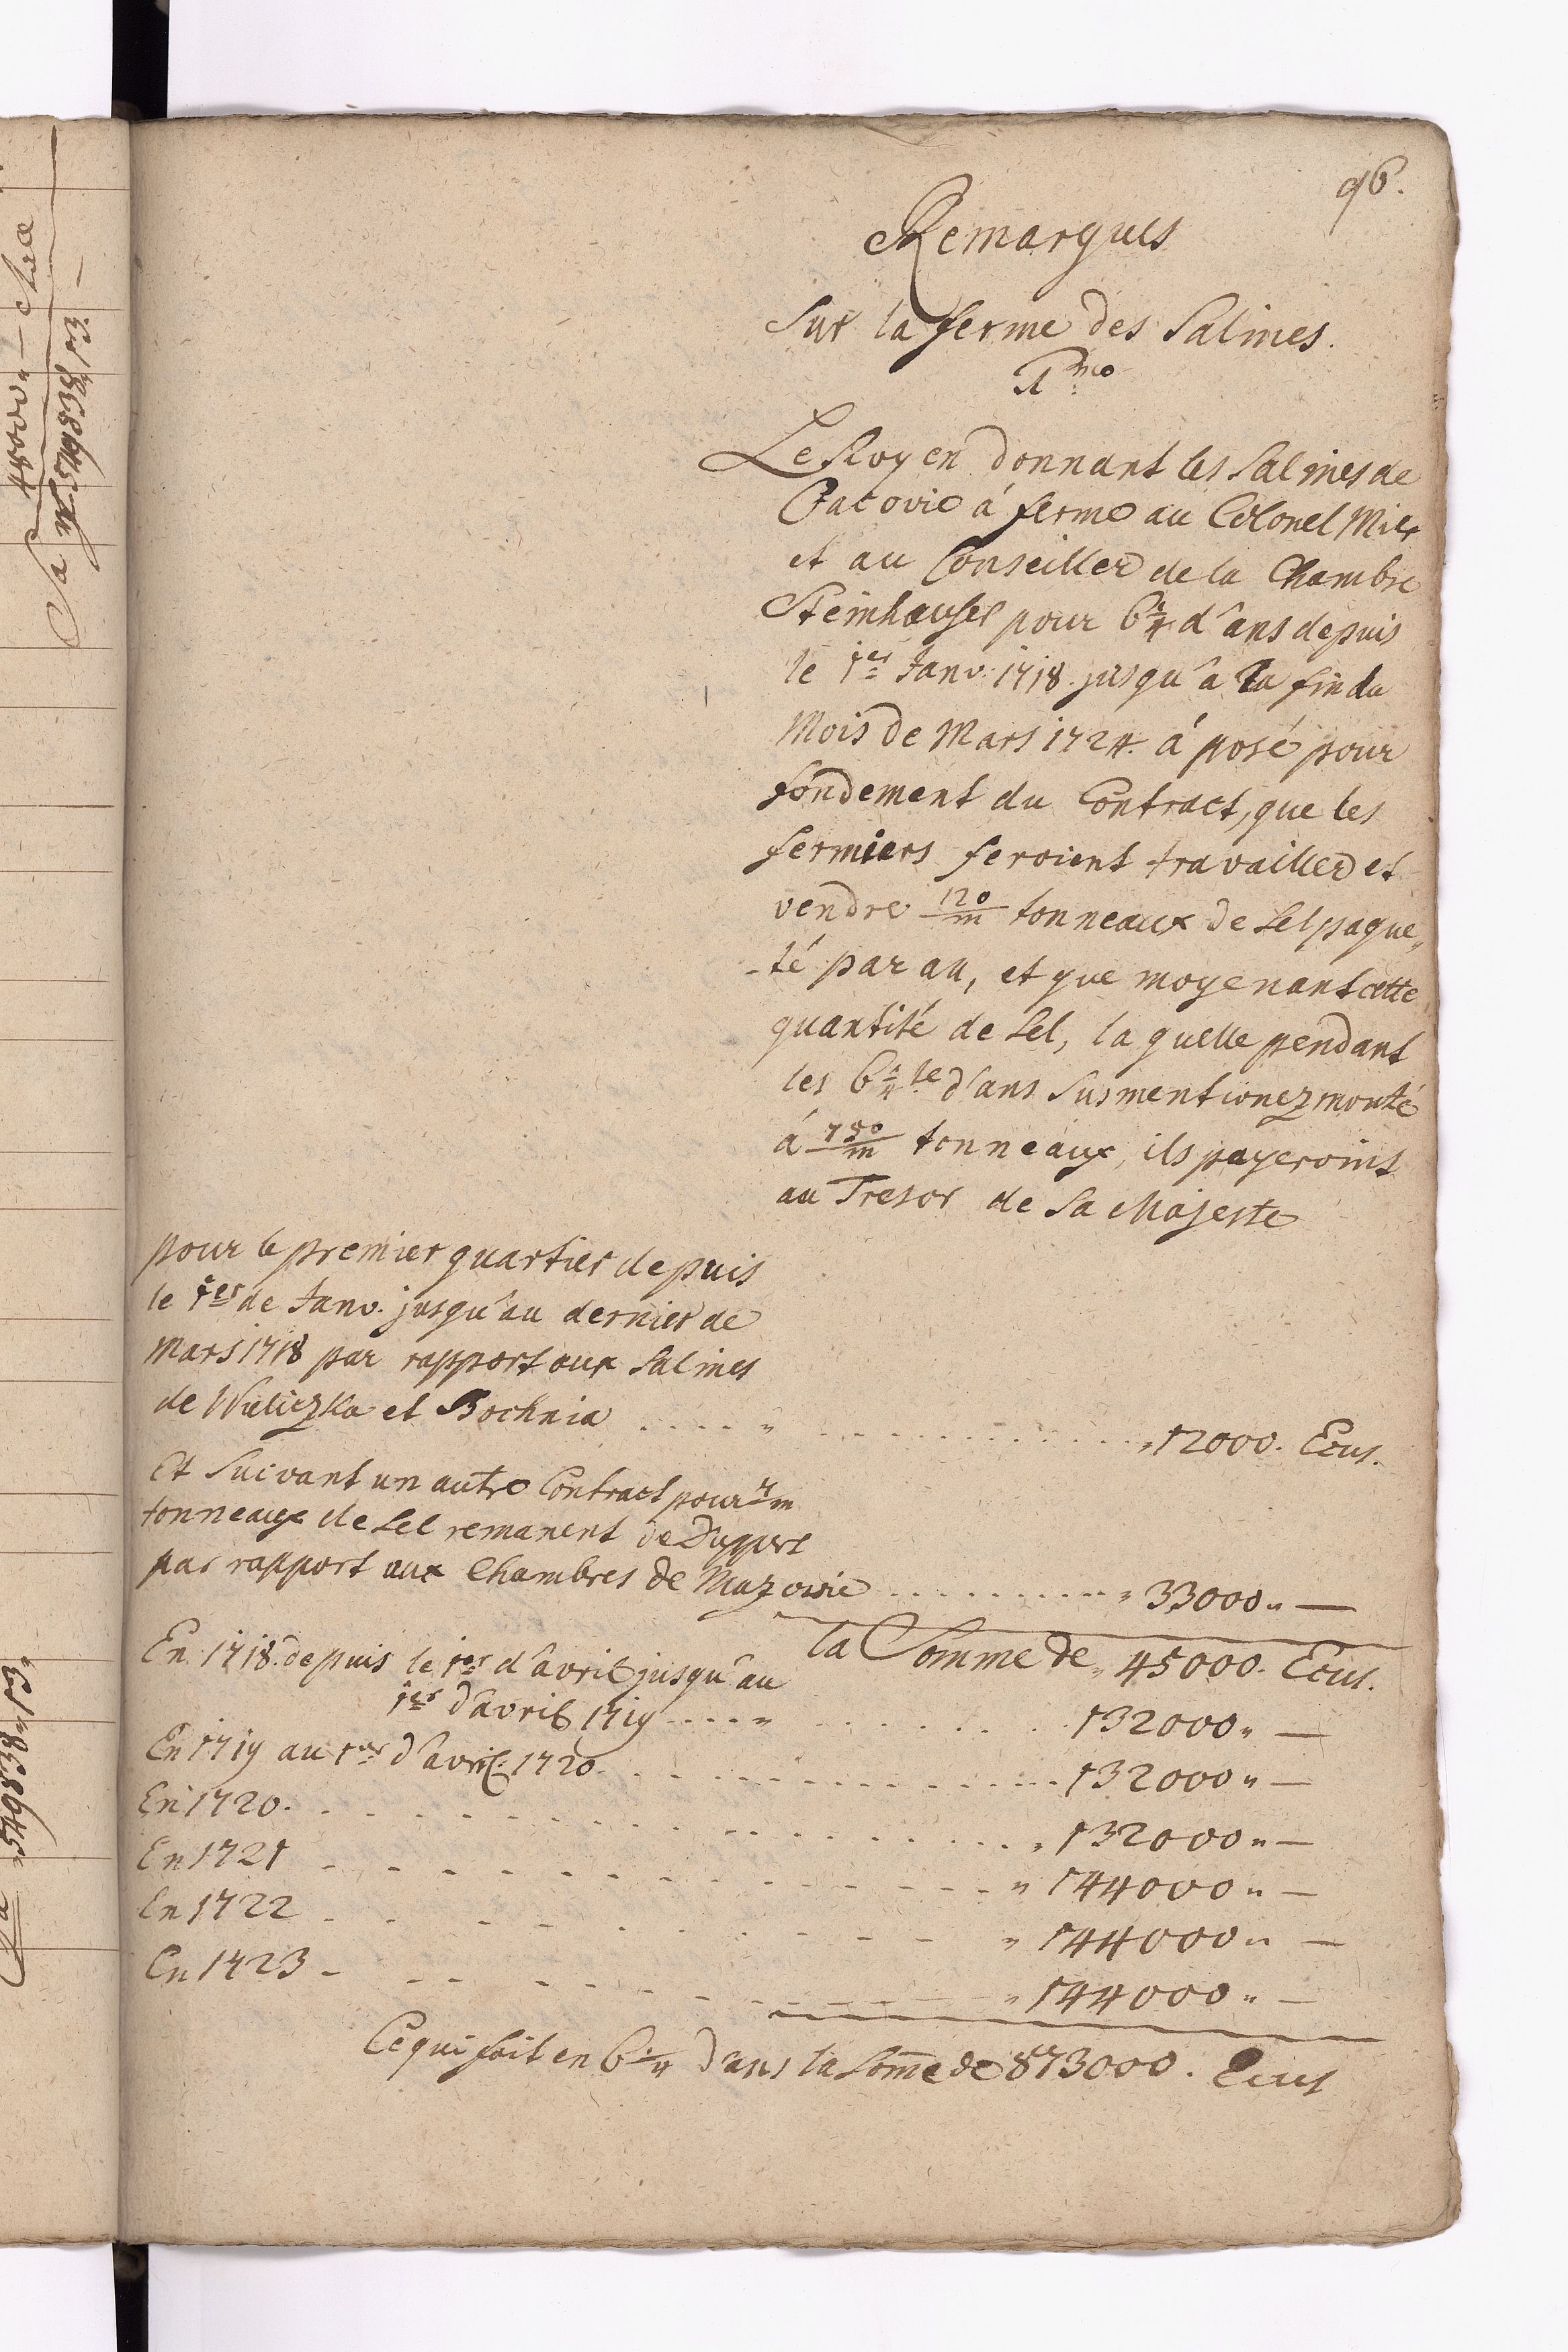 96.
Remarques
Sur la ferme des Salines.
1mo
Le Roy en donnant les Salines de
Cracovie á ferme au Colonel Mier
et au Conseiller de la Chambre
Steinhauser pour 6 1/4 d'ans depuis
le 1er Janv. 1718. jusqu'à la fin du
Mois de Mars 1724. á posé pour
fondement du Contract, que les
fermiers feroient travailler et
vendre 120/m tonneaux de Sel paque„
-té par an, et que moyenant cette
quantité de Sel, la quelle pendant
les 6 1/4 te d'ans Susmentionez monte
á 750/m tonneaux, ils payeroint
au Tresor de Sa Majeste
pour le premier quartier depuis
le 1er de Janv. jusqu'au dernier de
Mars 1718 par rapport aux Salines
de Wieliczka et Bochnia ..... „ ............ „ 12000. Ecus.
Et Suivant un autre Contract pour 4/m
tonneaux de Sel remanent de
par rapport aux Chambres de Mazovie ........... „ 33000 „ —
la Somme de „ 45000. Ecus.
En 1718. depuis le 1er d'avril jusqu'au
1er d'avril 1719 .... „ ....... 132000 „ —
En 1719 au 1er d'avril. 1720. ............ 132000 „ —
En 1720. ............ „ 132000 „ —
En 1721 ............ „ 144000 „ —
En 1722 ............ „ 144000 „ —
En 1723 - ............ „ 144000 „ —
Ce qui fait en 6 1/4 d'ans la Some de 873000. Ecus